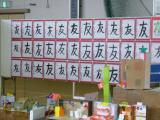 友 友 友 友 友 友 友 友 友 友
友 友 友 友 友 友 友 友 友 友
友 友 友 友 友 友 友 友 友